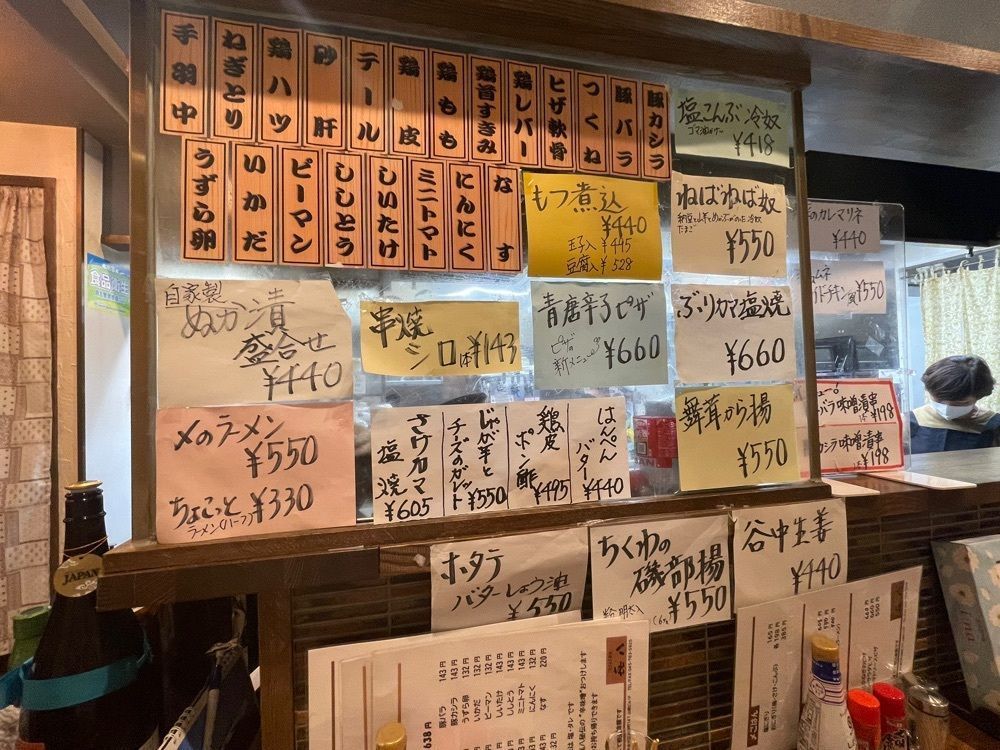 手羽中
ねぎとり
鶏ハツ
砂肝
テール
鶏皮
鶏もも
鶏首すきみ
鶏レバー
ヒザ軟骨
つくね
豚バラ
豚カシラ
うずら卵
いかだ
ピーマン
ししとう
しいたけ
ミニトマト
にんにく
なす
塩こんぶ冷奴
ゴマ油
¥418
もつ煮込
¥440
玉子入¥495
豆腐入¥528
ねばねば奴
¥550
のカレマリネ
¥440
¥550
食品衛生
自家製
ぬか漬
盛合せ
¥440
串焼
シロ
1本¥143
青唐辛子ピザ
ピザの
新メニュー
¥660
ぶりカマ塩焼
¥660
〆のラーメン
¥550
ちょこっと¥330
ラーメン(ハーフ)
さけカマ
塩焼
¥605
じゃが芋と
チーズのガレット
¥550
鶏皮
ポン酢
¥495
はんぺん
バター
¥440
舞茸から揚
¥550
バラ味噌漬串
¥198
カシラ味噌漬串
¥198
ホタテ
バターしょう油
¥550
ちくわの
磯部揚
¥550
谷中生姜
¥440
JAPAN
豚バラ
豚カシラ
うずら卵
いかだ
ピーマン
しいたけ
ししとう
ミニトマト
にんにく
なす